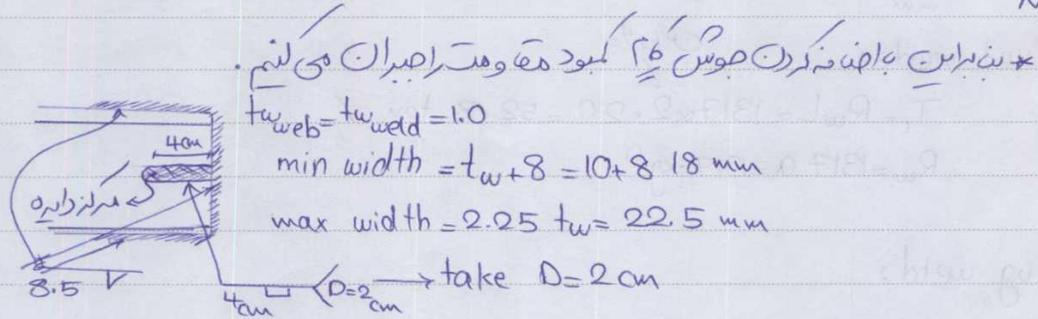 * بنابراین با اضافه کردن جوش کام کمبود مقاومت را جبران می کنیم.
tw web = tw weld = 1.0
min width = tw + 8 = 10 + 8 18 mm
max width = 2.25 tw = 22.5 mm
4cm
مرکز دایره
8.5
4cm
D=2 cm → take D = 2 cm